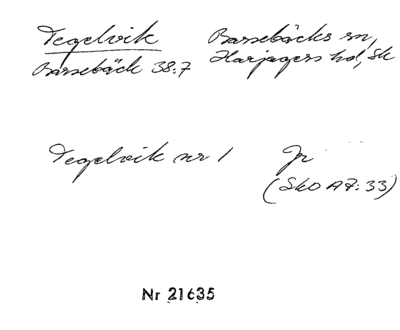 Tegelvik Barsebäcks sn,
Barsebäck 38:7 Harjagers hd, Sk
Tegelvik nr 1 Jr
(SkO A7:33)
Nr 21635